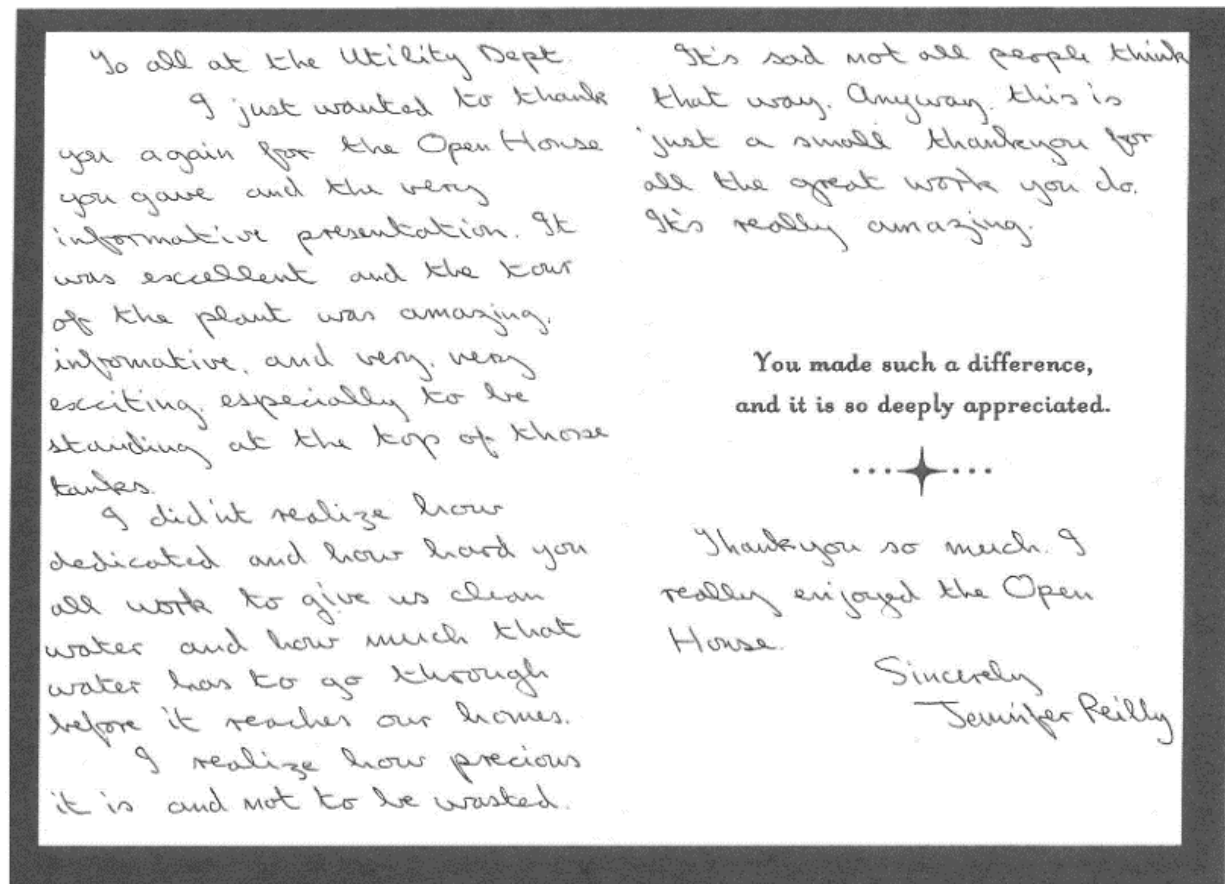 To all at the Utility Dept.
I just wanted to thank
you again for the Open House
you gave and the very
informative presentation. It
was excellent and the tour
of the plant was amazing,
infomative, and very, very
exciting, especially to be
standing at the top of those
tanks.
I did'nt realize how
dedicated and how hard you
all work to give us clean
water and how much that
water has to go through
before it reaches our homes.
I realize how precious
it is and not to be wasted.
It's sad not all people think
that way. Anyway, this is
just a small thankyou for
all the great work you do.
It's really amazing.
You made such a difference,
and it is so deeply appreciated.
Thankyou so much. I
really enjoyed the Open
House.
Sincerely
Jennifer Reilly